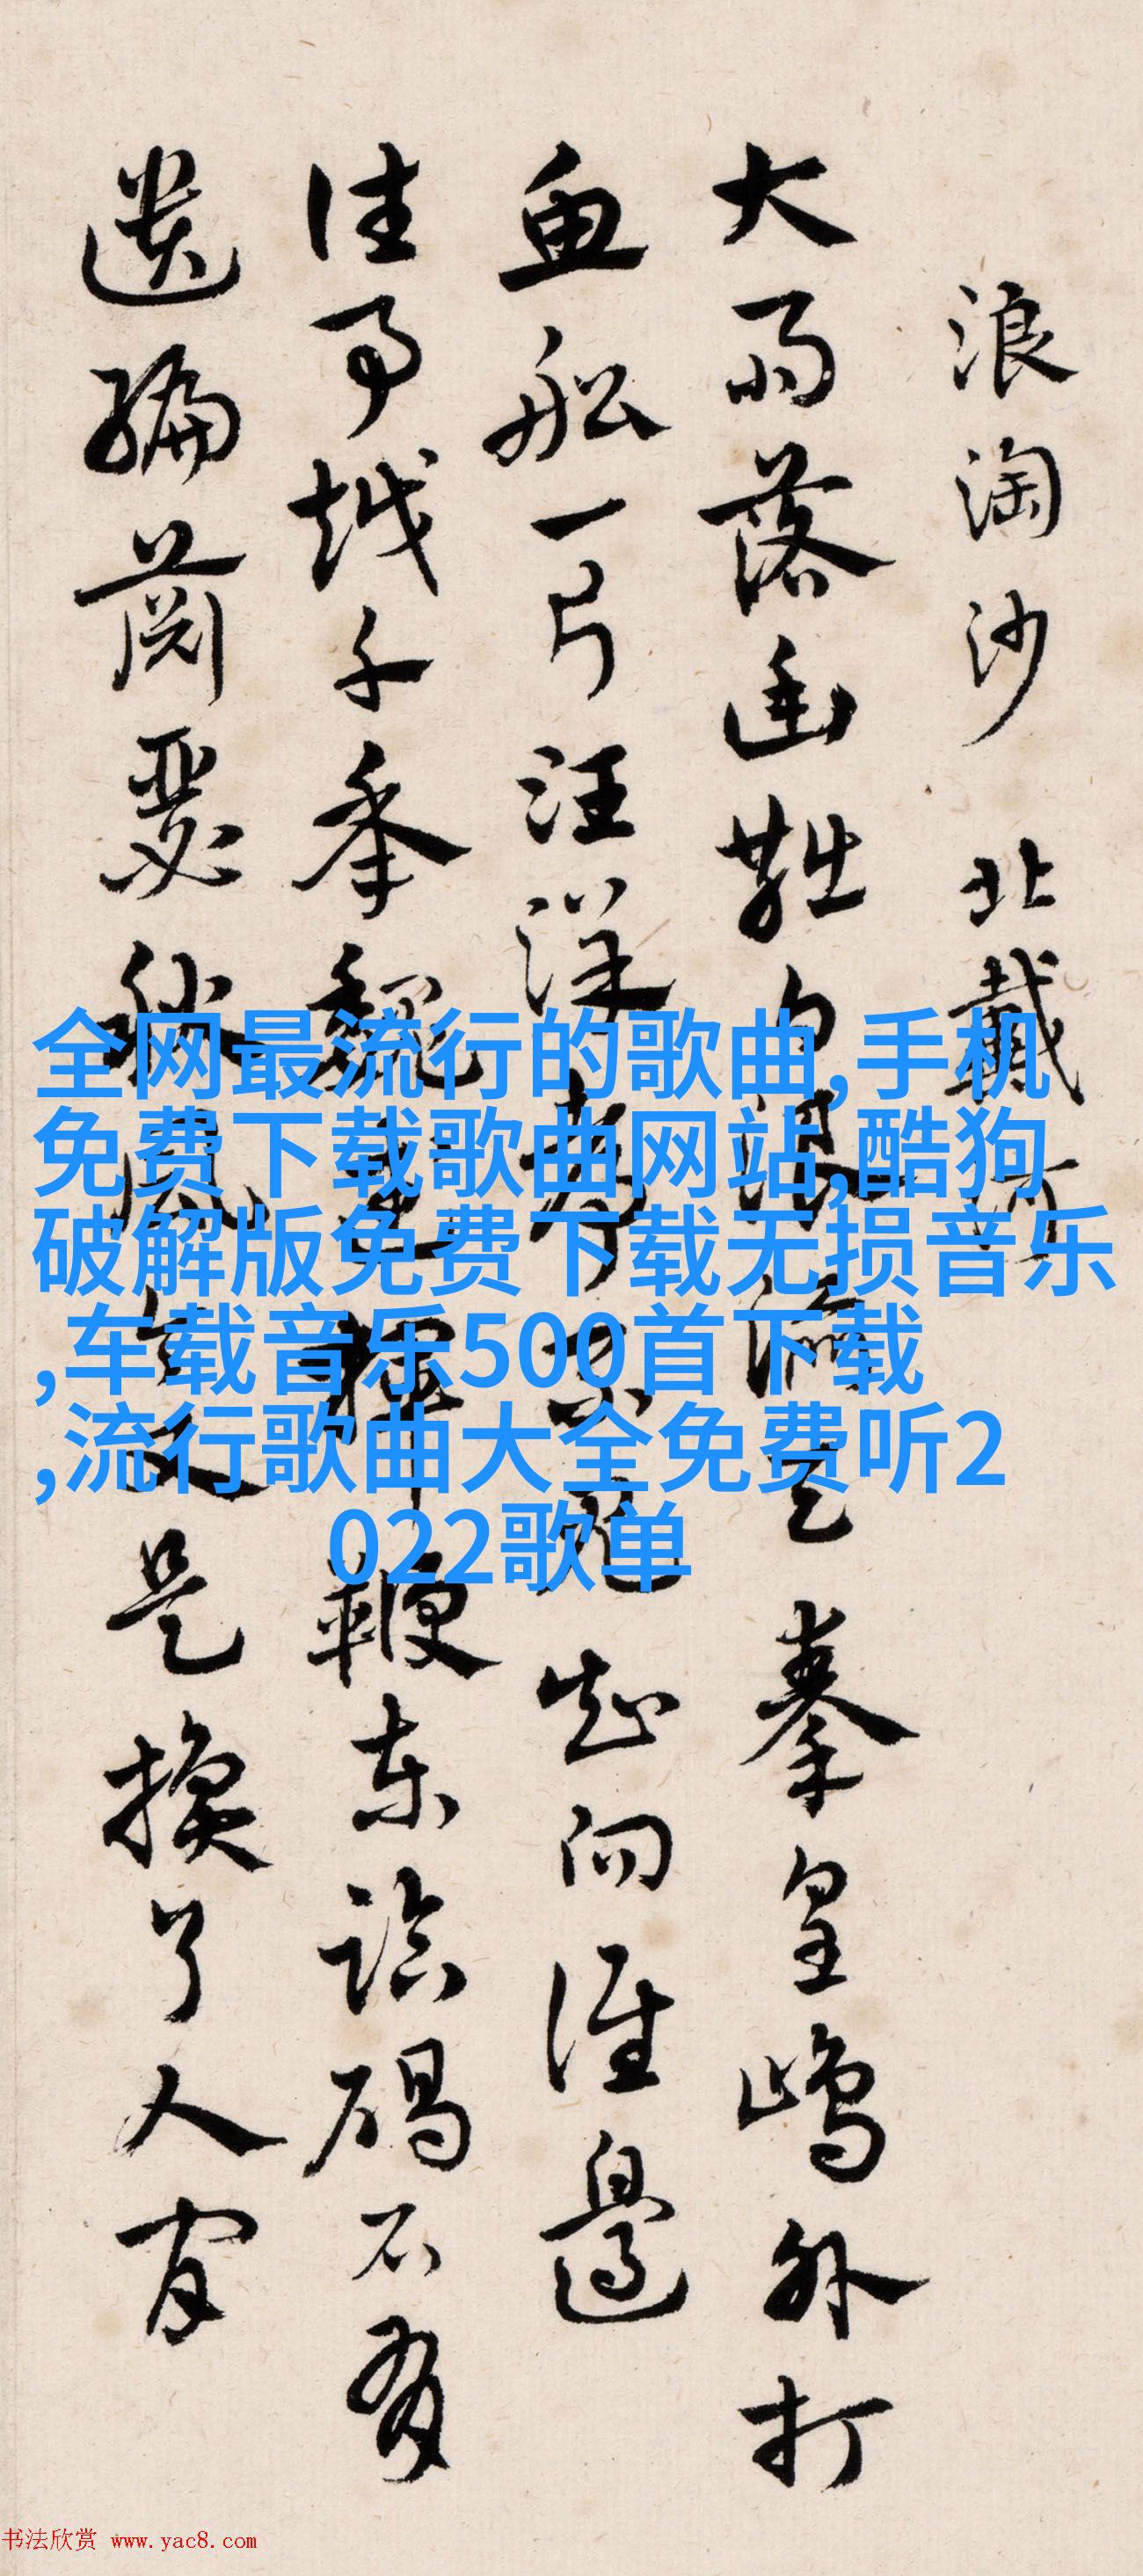 浪淘沙 北戴河
大雨落幽燕白浪滔天秦皇島外打
魚船一片汪洋都不見知向誰邊
往事越千年魏武揮鞭東臨碣石有
遺編蕭瑟秋風今又是換了人間
全网最流行的歌曲,手机
免费下载歌曲网站,酷狗
破解版免费下载无损音乐
,车载音乐500首下载
,流行歌曲大全免费听2
022歌单
书法欣赏 www.yac8.com